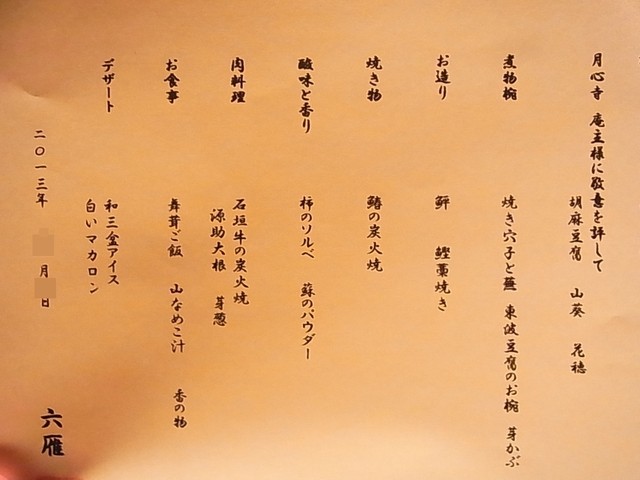 月心寺 庵主様に敬意を評して
胡麻豆腐 山葵 花穂
煮物椀
焼き穴子と蕪 東波豆腐のお椀 芽かぶ
お造り
鮃 鰹藁焼き
焼き物
鰆の炭火焼
酸味と香り
柿のソルベ 蘇のパウダー
肉料理
石垣牛の炭火焼
源助大根 芽葱
お食事
舞茸ご飯 山なめこ汁 香の物
デザート
和三盆アイス
白いマカロン
二〇一三年 月 日
六雁